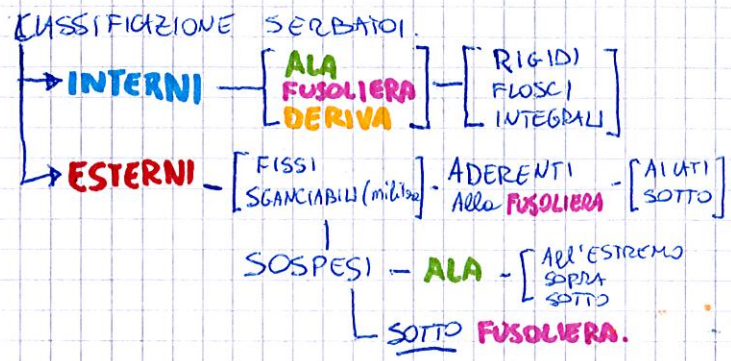 CLASSIFICAZIONE SERBATOI.
INTERNI — [ALA FUSOLIERA DERIVA] — [RIGIDI FLOSCI INTEGRALI]
ESTERNI — [FISSI SGANCIABILI (militare)] - ADERENTI Alla FUSOLIERA - [AI LATI SOTTO]
SOSPESI — ALA - [All'ESTREMO SOPRA SOTTO]
SOTTO FUSOLIERA.